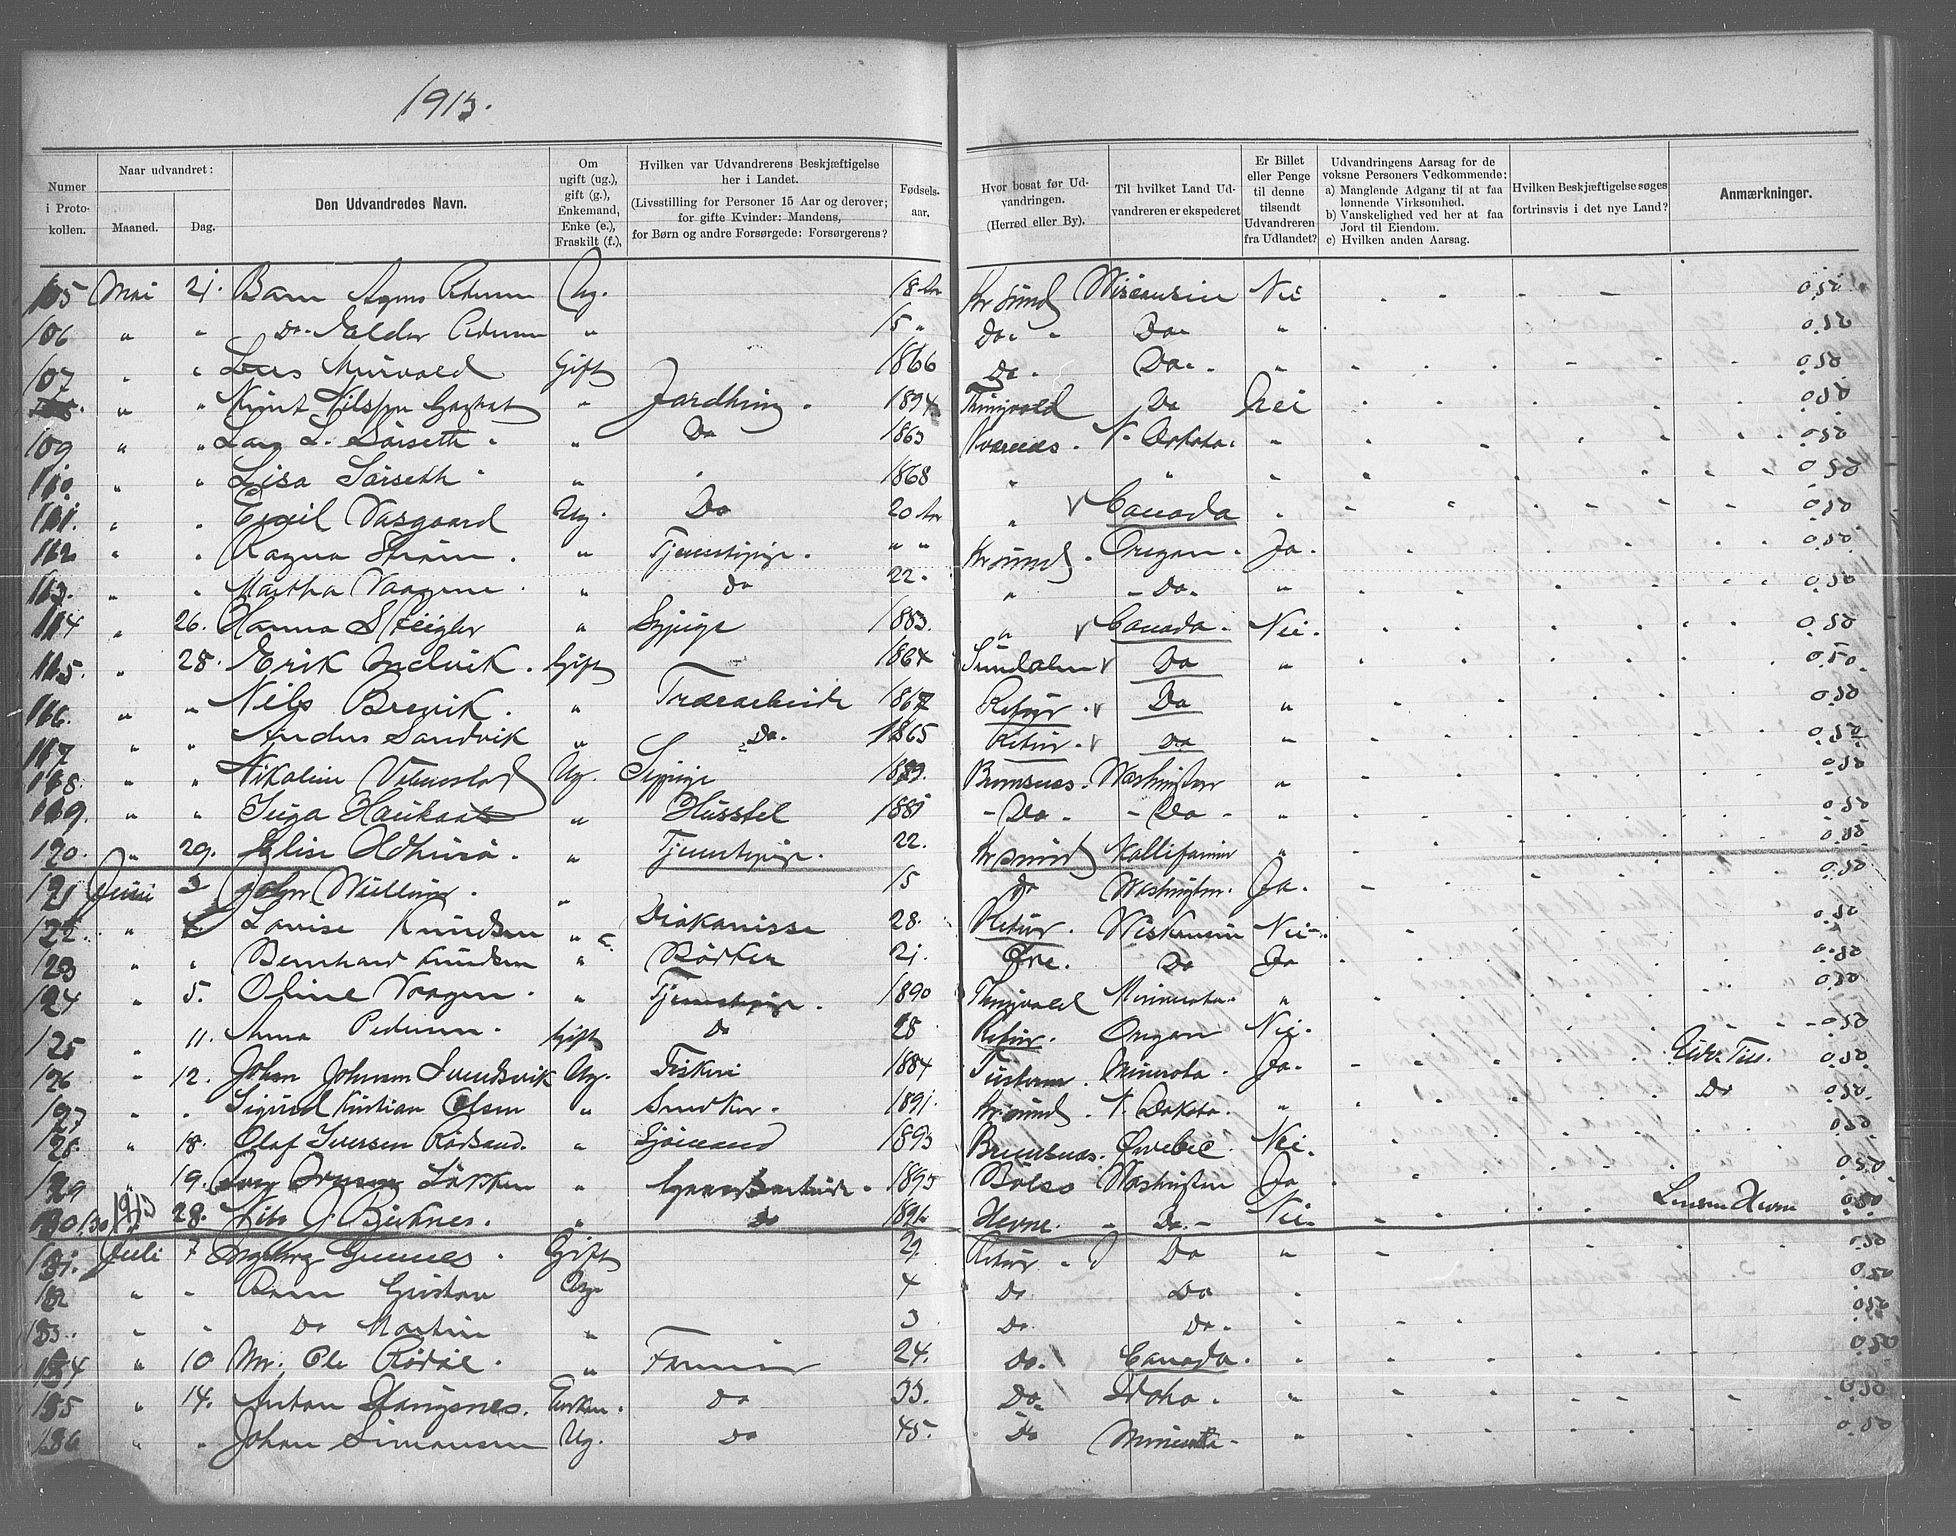 1913.
Numer i Protokollen.
Naar udvandret:
Maaned.
Dag.
Den Udvandredes Navn.
Om ugift (ug.), gift (g.), Enkemand, Enke (e.), Fraskilt (f.),
Hvilken var Udvandrerens Beskjæftigelse her i Landet.
(Livsstilling for Personer 15 Aar og derover; for gifte Kvinder: Mandens, for Børn og andre Forsørgede: Forsørgerens?
Fødsels-aar.
Hvor bosat før Udvandringen.
(Herred eller By).
Til hvilket Land Udvandreren er ekspederet
Er Billet eller Penge til denne tilsendt Udvandreren fra Udlandet?
Udvandringens Aarsag for de voksne Personers Vedkommende:
a) Manglende Adgang til at faa lønnende Virksomhed.
b) Vanskelighed ved her at faa Jord til Eiendom.
c) Hvilken anden Aarsag.
Hvilken Beskjæftigelse søges fortrinsvis i det nye Land?
Anmærkninger.
105 Mai 21. Barn Agnes Pedersen Ug. 18 Kr sund Wisconsin Nei 0.50
106 " " Do Pedersen " 15 " Do " Do " 0.50
107 " " Lars Gift 1866 Do. Do. " 0.50
" " Knut Nilssen " Jordbrug. 1894 Thingvold Do Nei 0.50
109 " " Lars L. Sørseth. " Do 1863 Kvarnes. N. Dakota. " 0.50
110. " " Lisa Sørseth " 1868 " " " 0.50
111. " " Emil Vasgaard Ug. Do 20 " V Canada " 0.50
112 " " Ragna Strøm. " Tjenestepige. " " Kr sund. Oregon. Ja. 0.50
113. " " Martha Vaagene. " Do 22. " Do. " 0.50
114 " 26. Hanna Steigler " Sypige 1883. " V Canada. Nei. 0.50
115. " 28. Erik Indvik. Gift 1864 Sundalen V Do " 0.50.
116. " " Nils Brevik. " Træarbeide 1867 Retur. V Do " 0.50
117 " " Anders Sandvik " Do. 1865 Retur. V Do " 0.50
118. " " Nikoline Ug. Sypige 1889. Bremsnes. Washington " 0.50
119. " " Inga " Husstel 1881 Do. Do " 0.50
120. " 29. Elise " Tjenestepige. 22. Kr sund Kallifornien " 0.50
121 Juni 3 John " 15 Do Washington. Ja. 0.50
122. " 4 Lovise Knudsen " Diakonisse 28. Retur. Wiskonsin Nei. 0.50
123 " " Bernhard Knudsen " Bødker 21. Øre. Do Ja 0.50
124 " 5. Oline Vaagen. " Tjenestepige. 1890 Thingvold Minnesota. " 0.50
125 " 11. Anna Pedersen. Gift Do 28 Retur. Oregon Nei. 0.50
126 " 12. Johan Johnsen Svendsvik Ug. Fiskeri 1884 Tusteren. Minesota. Ja. 0.50
127 " " Sigurd Kristian Olsen " Snedker. 1891. Kr sund. N. Dakota. " Do 0.50.
128. " 18. Olaf Iversen Rødsand. " Sjømand 1893 Bremsnes. Qvebec. Nei. 0.50
129 " 19. Løkken " Gaardsarbeide. 1895 Bolsø Washington Ja 0.50
130 1913 28. Nils J. Birknes. " Do 1896 Hevne. Do. Nei. Hevne 0.50
131. Juli 7 Ingeborg Gift 29 Retur. Do " 0.50
132 " " Barn Gustav Ug. 4 Do Do " 0.50
133. " " Do Martin " 3 Do. Do. " 0.50
134 " 10 Mr. Ole Rødøl. " 24. Do. Canada. " 0.50
135 " 14. Anton Do 33. Do. Idaho. " 0.50
136 " " Johan Simonsen Ug. Do 45. Do Minesota. " 0.50